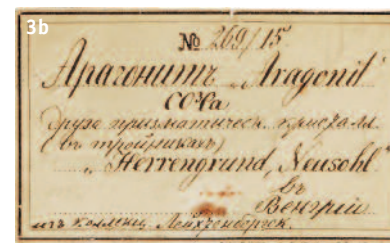 3b
№ 269/15.
Арагонитъ „Aragonit“
CO³Ca
Друза призматическ. кристалл.
(въ тройникахъ)
„Herrengrund, Neusohl“
въ
Венгріи
изъ коллекц. Лейхтенбергск.